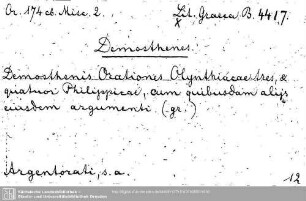 Or. 174 cb. Misc. 2. Lit. Graeca B. 4417.
X
Demosthenes.
Demosthenis Orationes Olynthiacae tres, &
quatuor Philippicae, cum quibusdam alijs
eiusdem argumenti. (gr.)
Argentorati, s. a.
12
Sächsische Landesbibliothek -
Staats- und Universitätsbibliothek Dresden